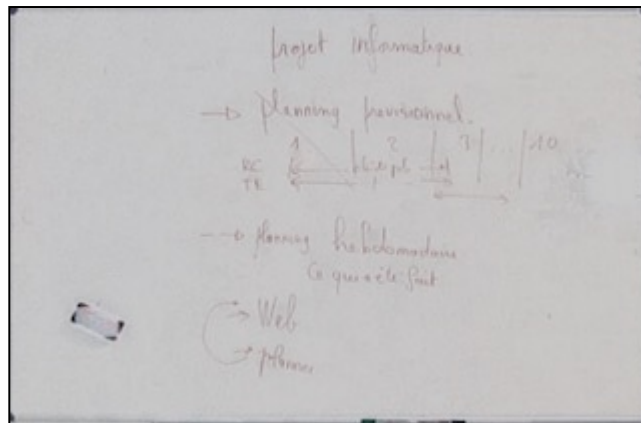 projet informatique
→ planning previsionnel.
1 2 3 ... 10
RC
TR
→ planning hebdomadaire
Ce qui a été fait
Web